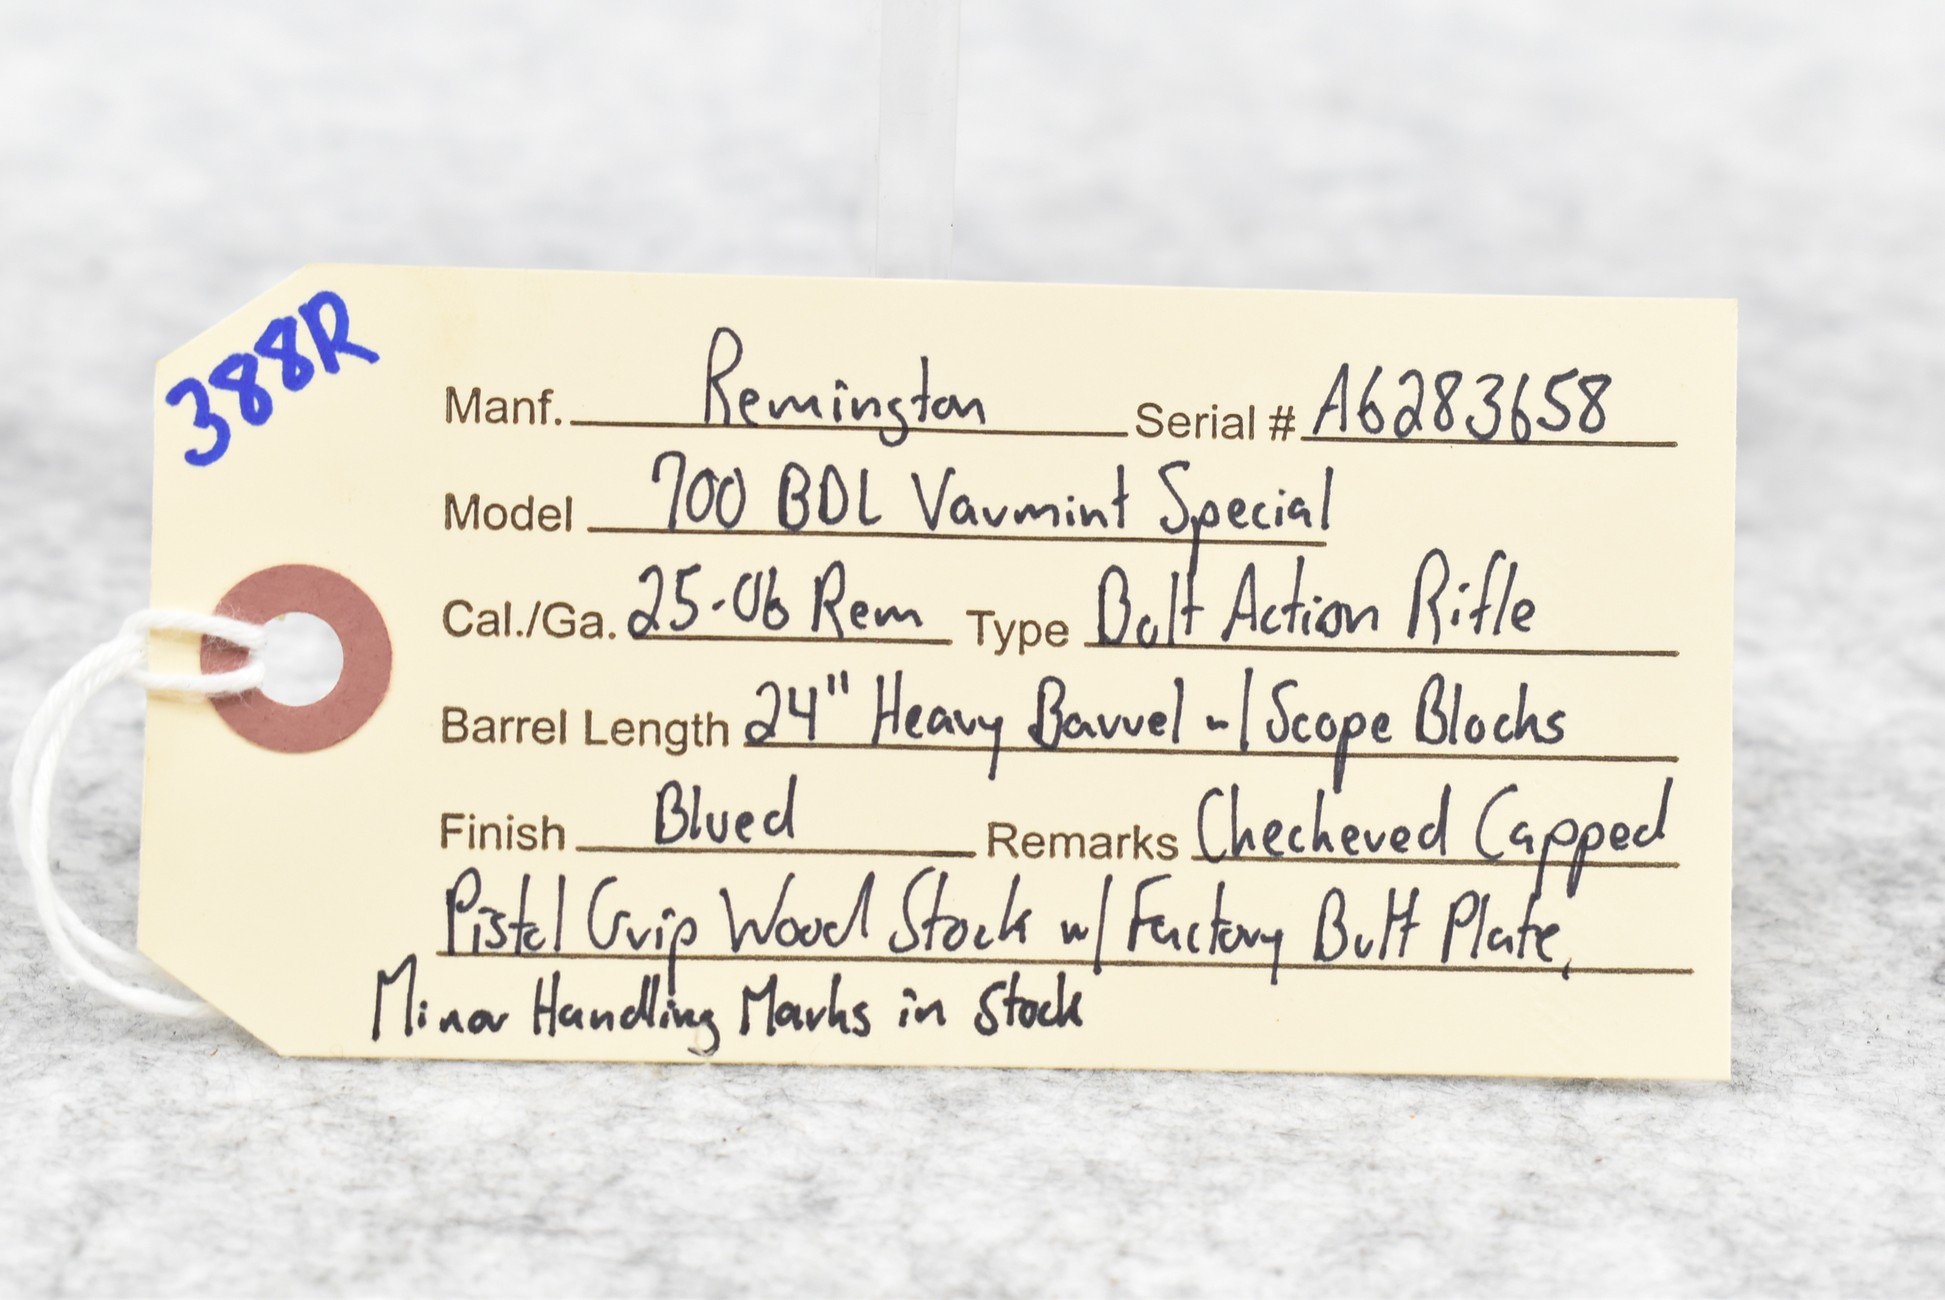 388R
Manf. Remington Serial # A6283658
Model 700 BDL Varmint Special
Cal./Ga. 25-06 Rem Type Bolt Action Rifle
Barrel Length 24" Heavy Barrel w/ Scope Blocks
Finish Blued Remarks Checkered Capped
Pistol Grip Wood Stock w/ Factory Butt Plate,
Minor Handling Marks in Stock